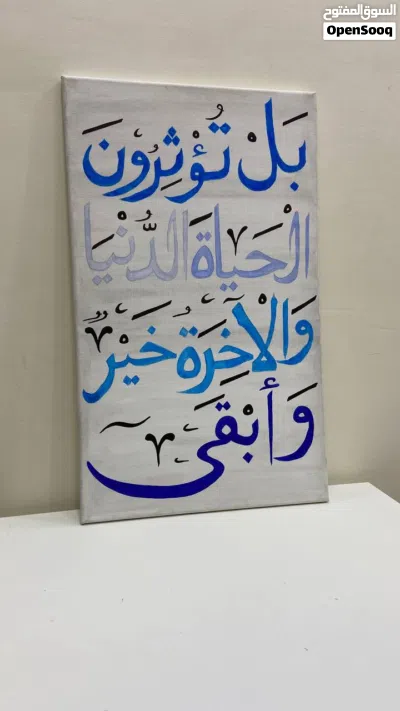 السوق المفتوح
OpenSooq
بَلْ تُؤْثِرُونَ
الْحَيَاةَ الدُّنْيَا
وَالْآخِرَةُ خَيْرٌ
وَأَبْقَى